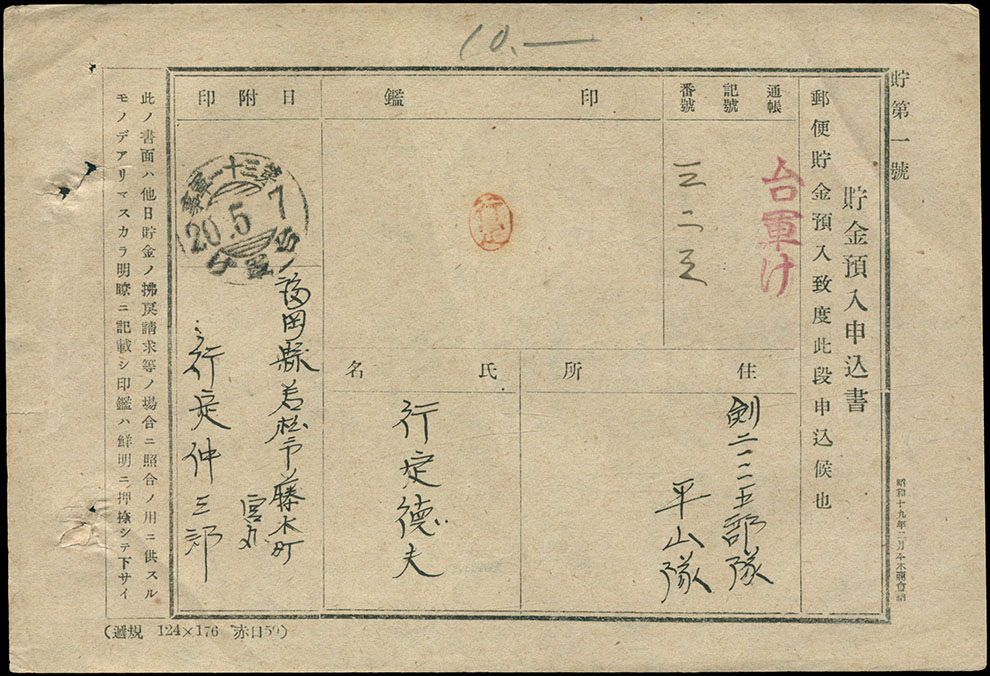 10.—
貯第一號
貯金預入申込書
郵便貯金預入致度此段申込候也
通帳
記號
番號
台軍け
三二三
印鑑
行定
日附印
第三十一軍
20.5.7
台軍け
住所
剣二二三五部隊
平山隊
氏名
行定德夫
福岡縣若松市藤木町
宮丸
行定仲三郎
此ノ書面ハ他日貯金ノ拂戻請求等ノ場合ニ照合ノ用ニ供スル
モノデアリマスカラ明瞭ニ記載シ印鑑ハ鮮明ニ押捺シテ下サイ
(遞規 124×176 赤口50)